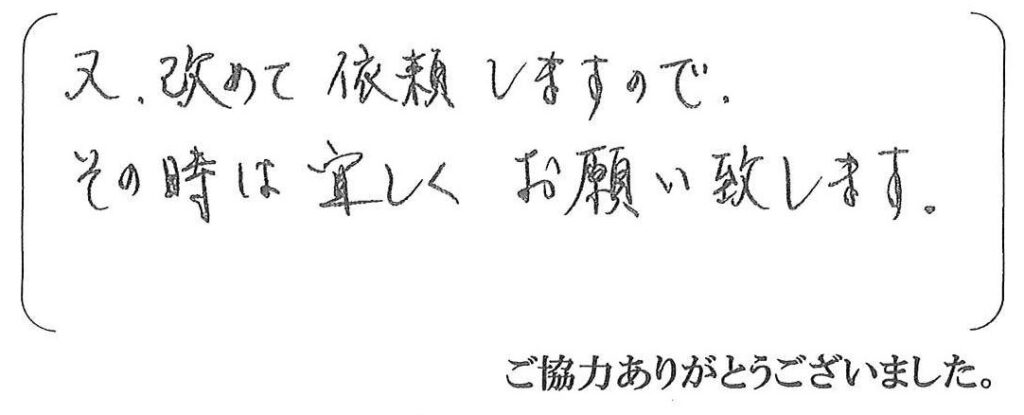 又、改めて 依頼 しますので、
その時は 宜しく お願い致します。
ご協力ありがとうございました。